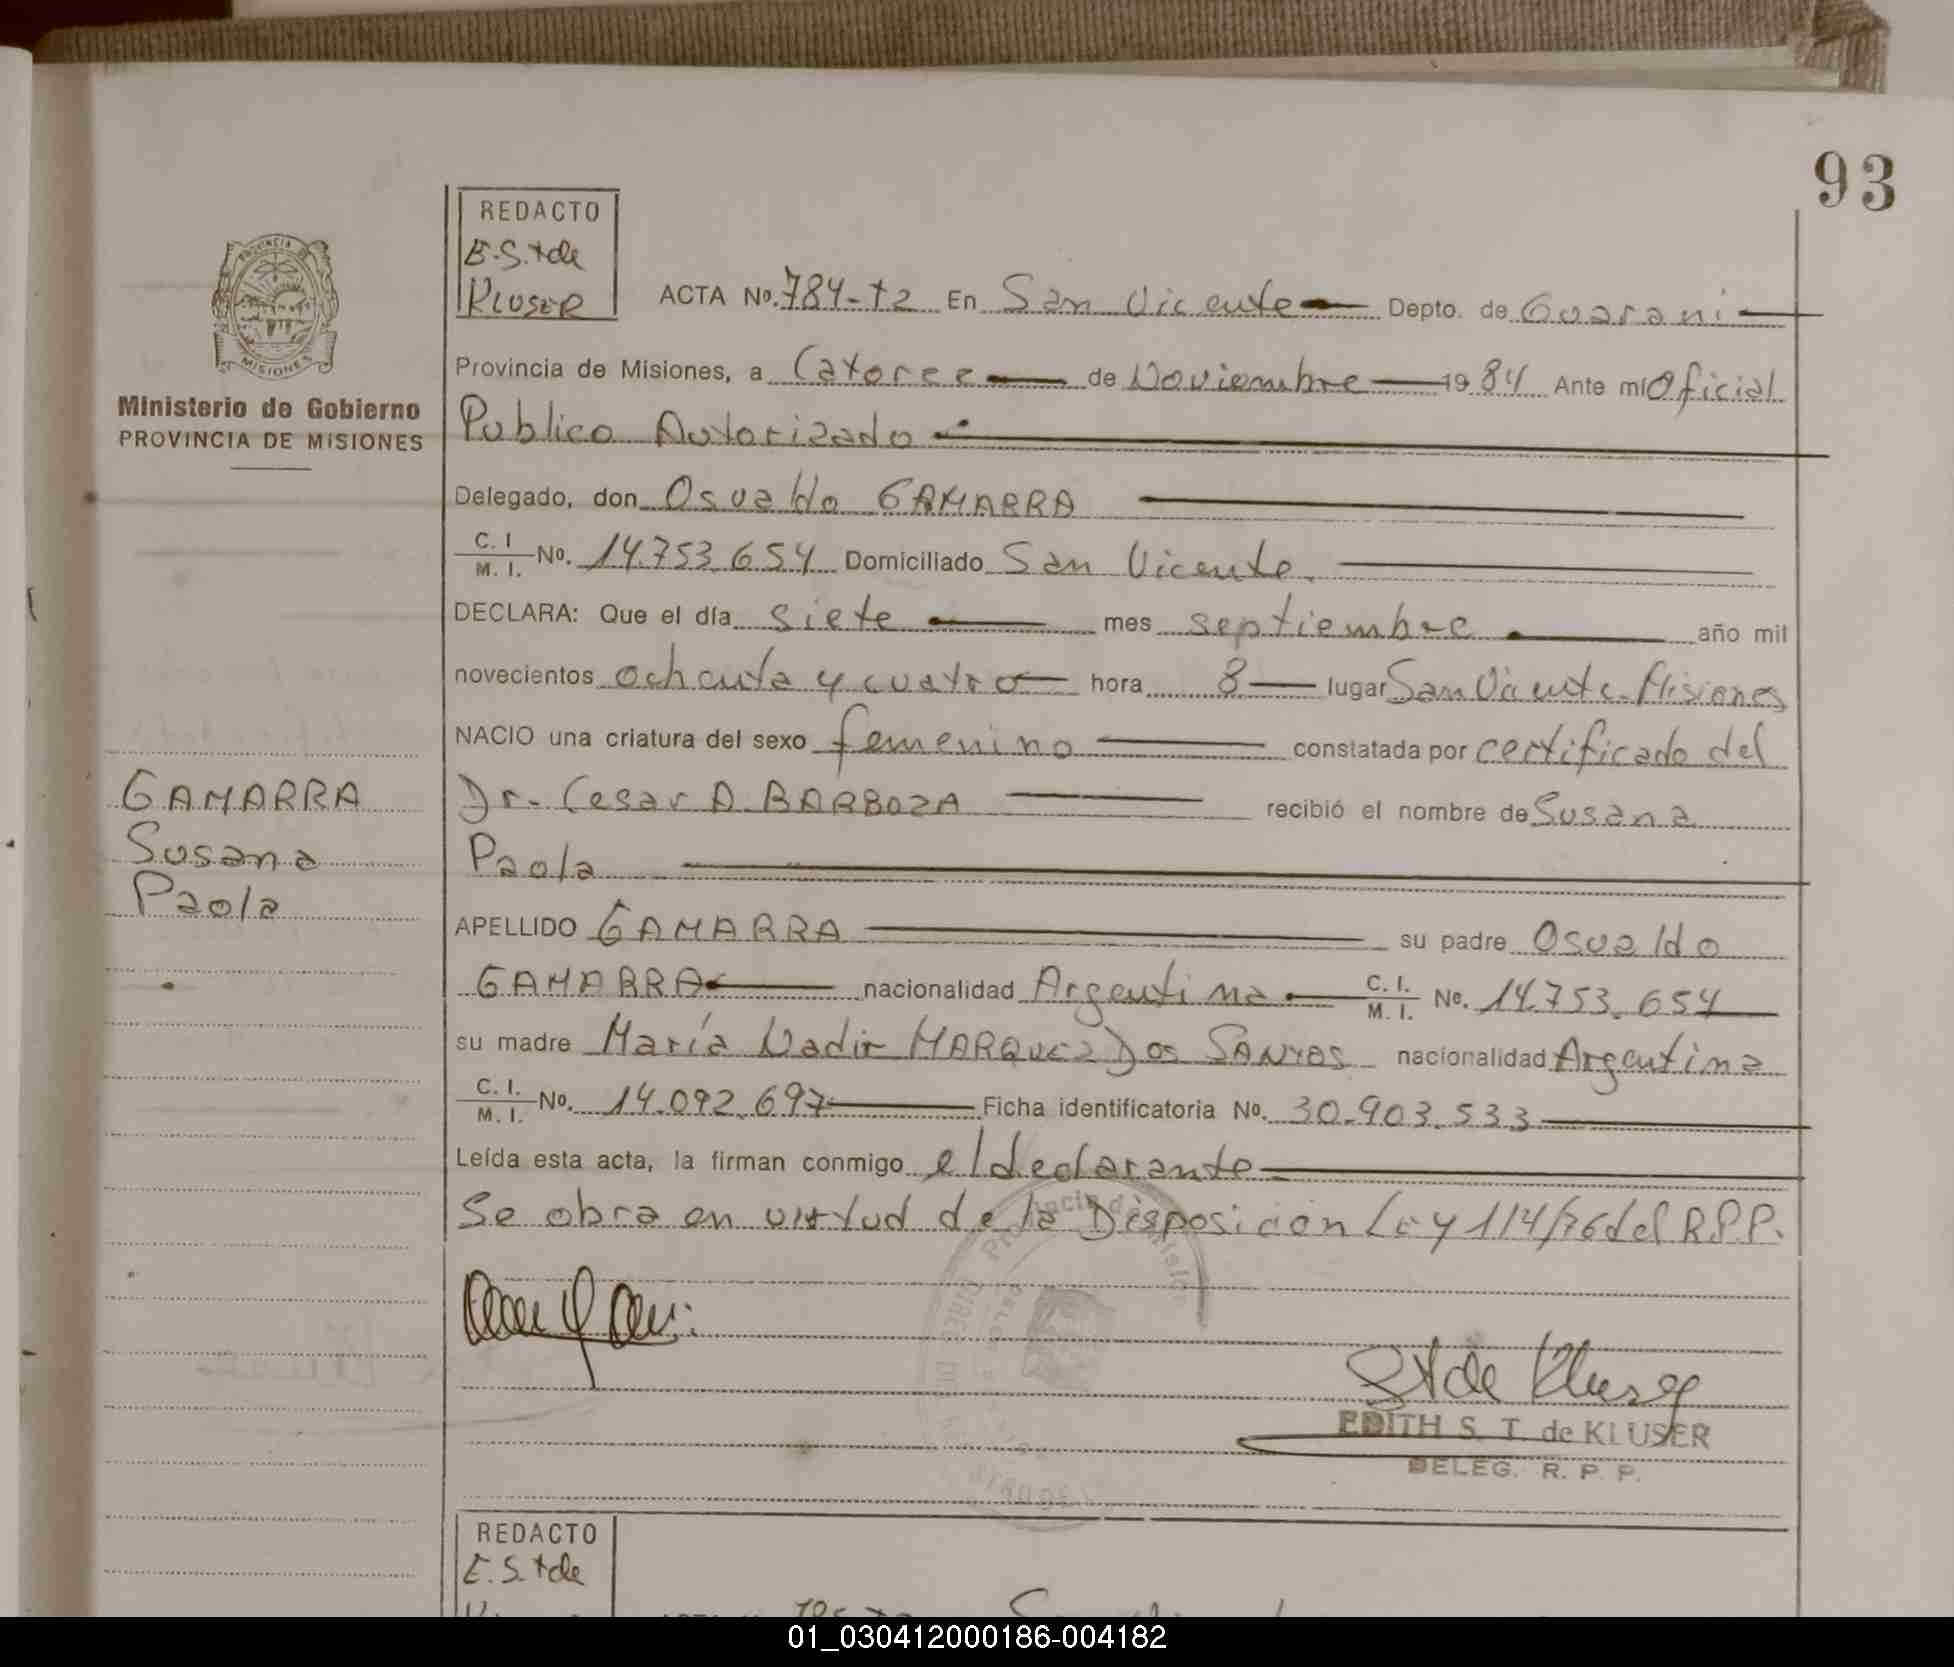 93
REDACTO
E.S.t de
KLUSER
PROVINCIA DE
MISIONES
Ministerio de Gobierno
PROVINCIA DE MISIONES
ACTA Nº. 784-t2 En San Vicente Depto. de Guarani
Provincia de Misiones, a Catorce de Noviembre 1984 Ante mí Oficial
Publico Autorizado
Delegado, don Osvaldo GAMARRA
C. I.
M. I. Nº. 14.753.654 Domiciliado San Vicente.
DECLARA: Que el día siete mes septiembre año mil
novecientos ochenta y cuatro hora 8 lugar San Vicente-Misiones
NACIO una criatura del sexo femenino constatada por certificado del
Dr. Cesar A. BARBOZA recibió el nombre de Susana
Paola
GAMARRA
Susana
Paola
APELLIDO GAMARRA su padre Osvaldo
GAMARRA nacionalidad Argentina C. I.
M. I. Nº. 14.753.654
su madre María Nadir MARQUEZ DOS SANTOS nacionalidad Argentina
C. I.
M. I. Nº. 14.092.697 Ficha identificatoria Nº. 30.903.533
Leída esta acta, la firman conmigo el declarante
Se obra en virtud de la Disposición Ley 114/76 del R.P.P.
St de Kluser
EDITH S. T. de KLUSER
DELEG. R. P. P.
REDACTO
E. S. t de
01_030412000186-004182